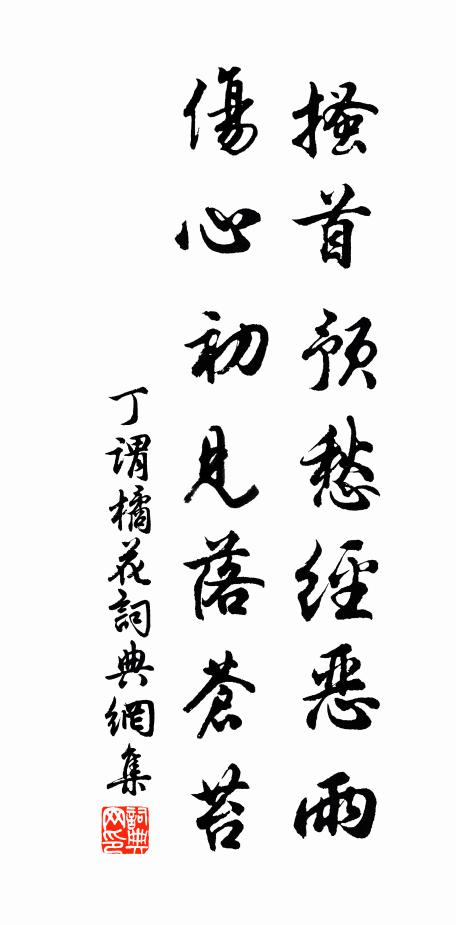 搔首預愁經惡雨
傷心初見落蒼苔
丁謂橘花詞典網集
詞典网印